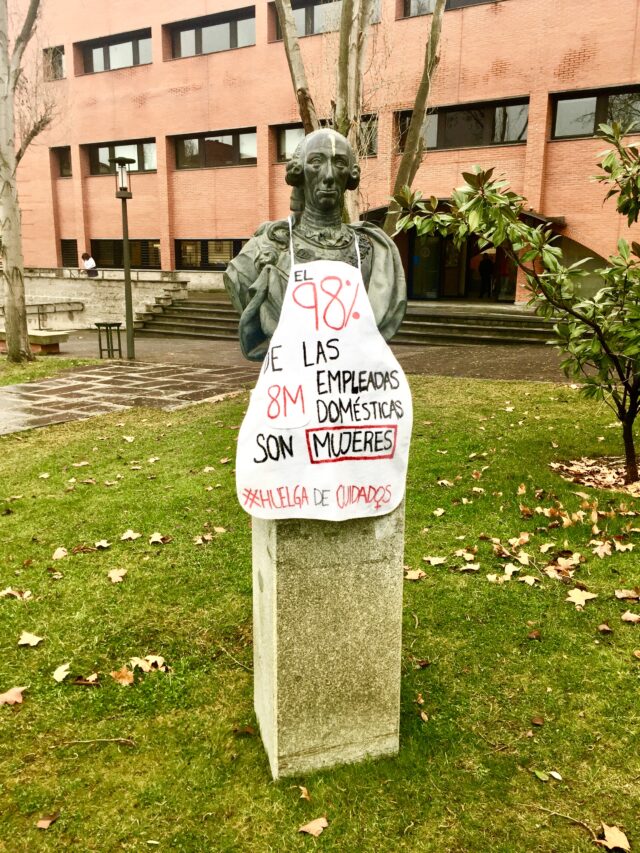 EL
98%
DE LAS
8M EMPLEADAS
DOMÉSTICAS
SON MUJERES
#HUELGA DE CUIDADOS